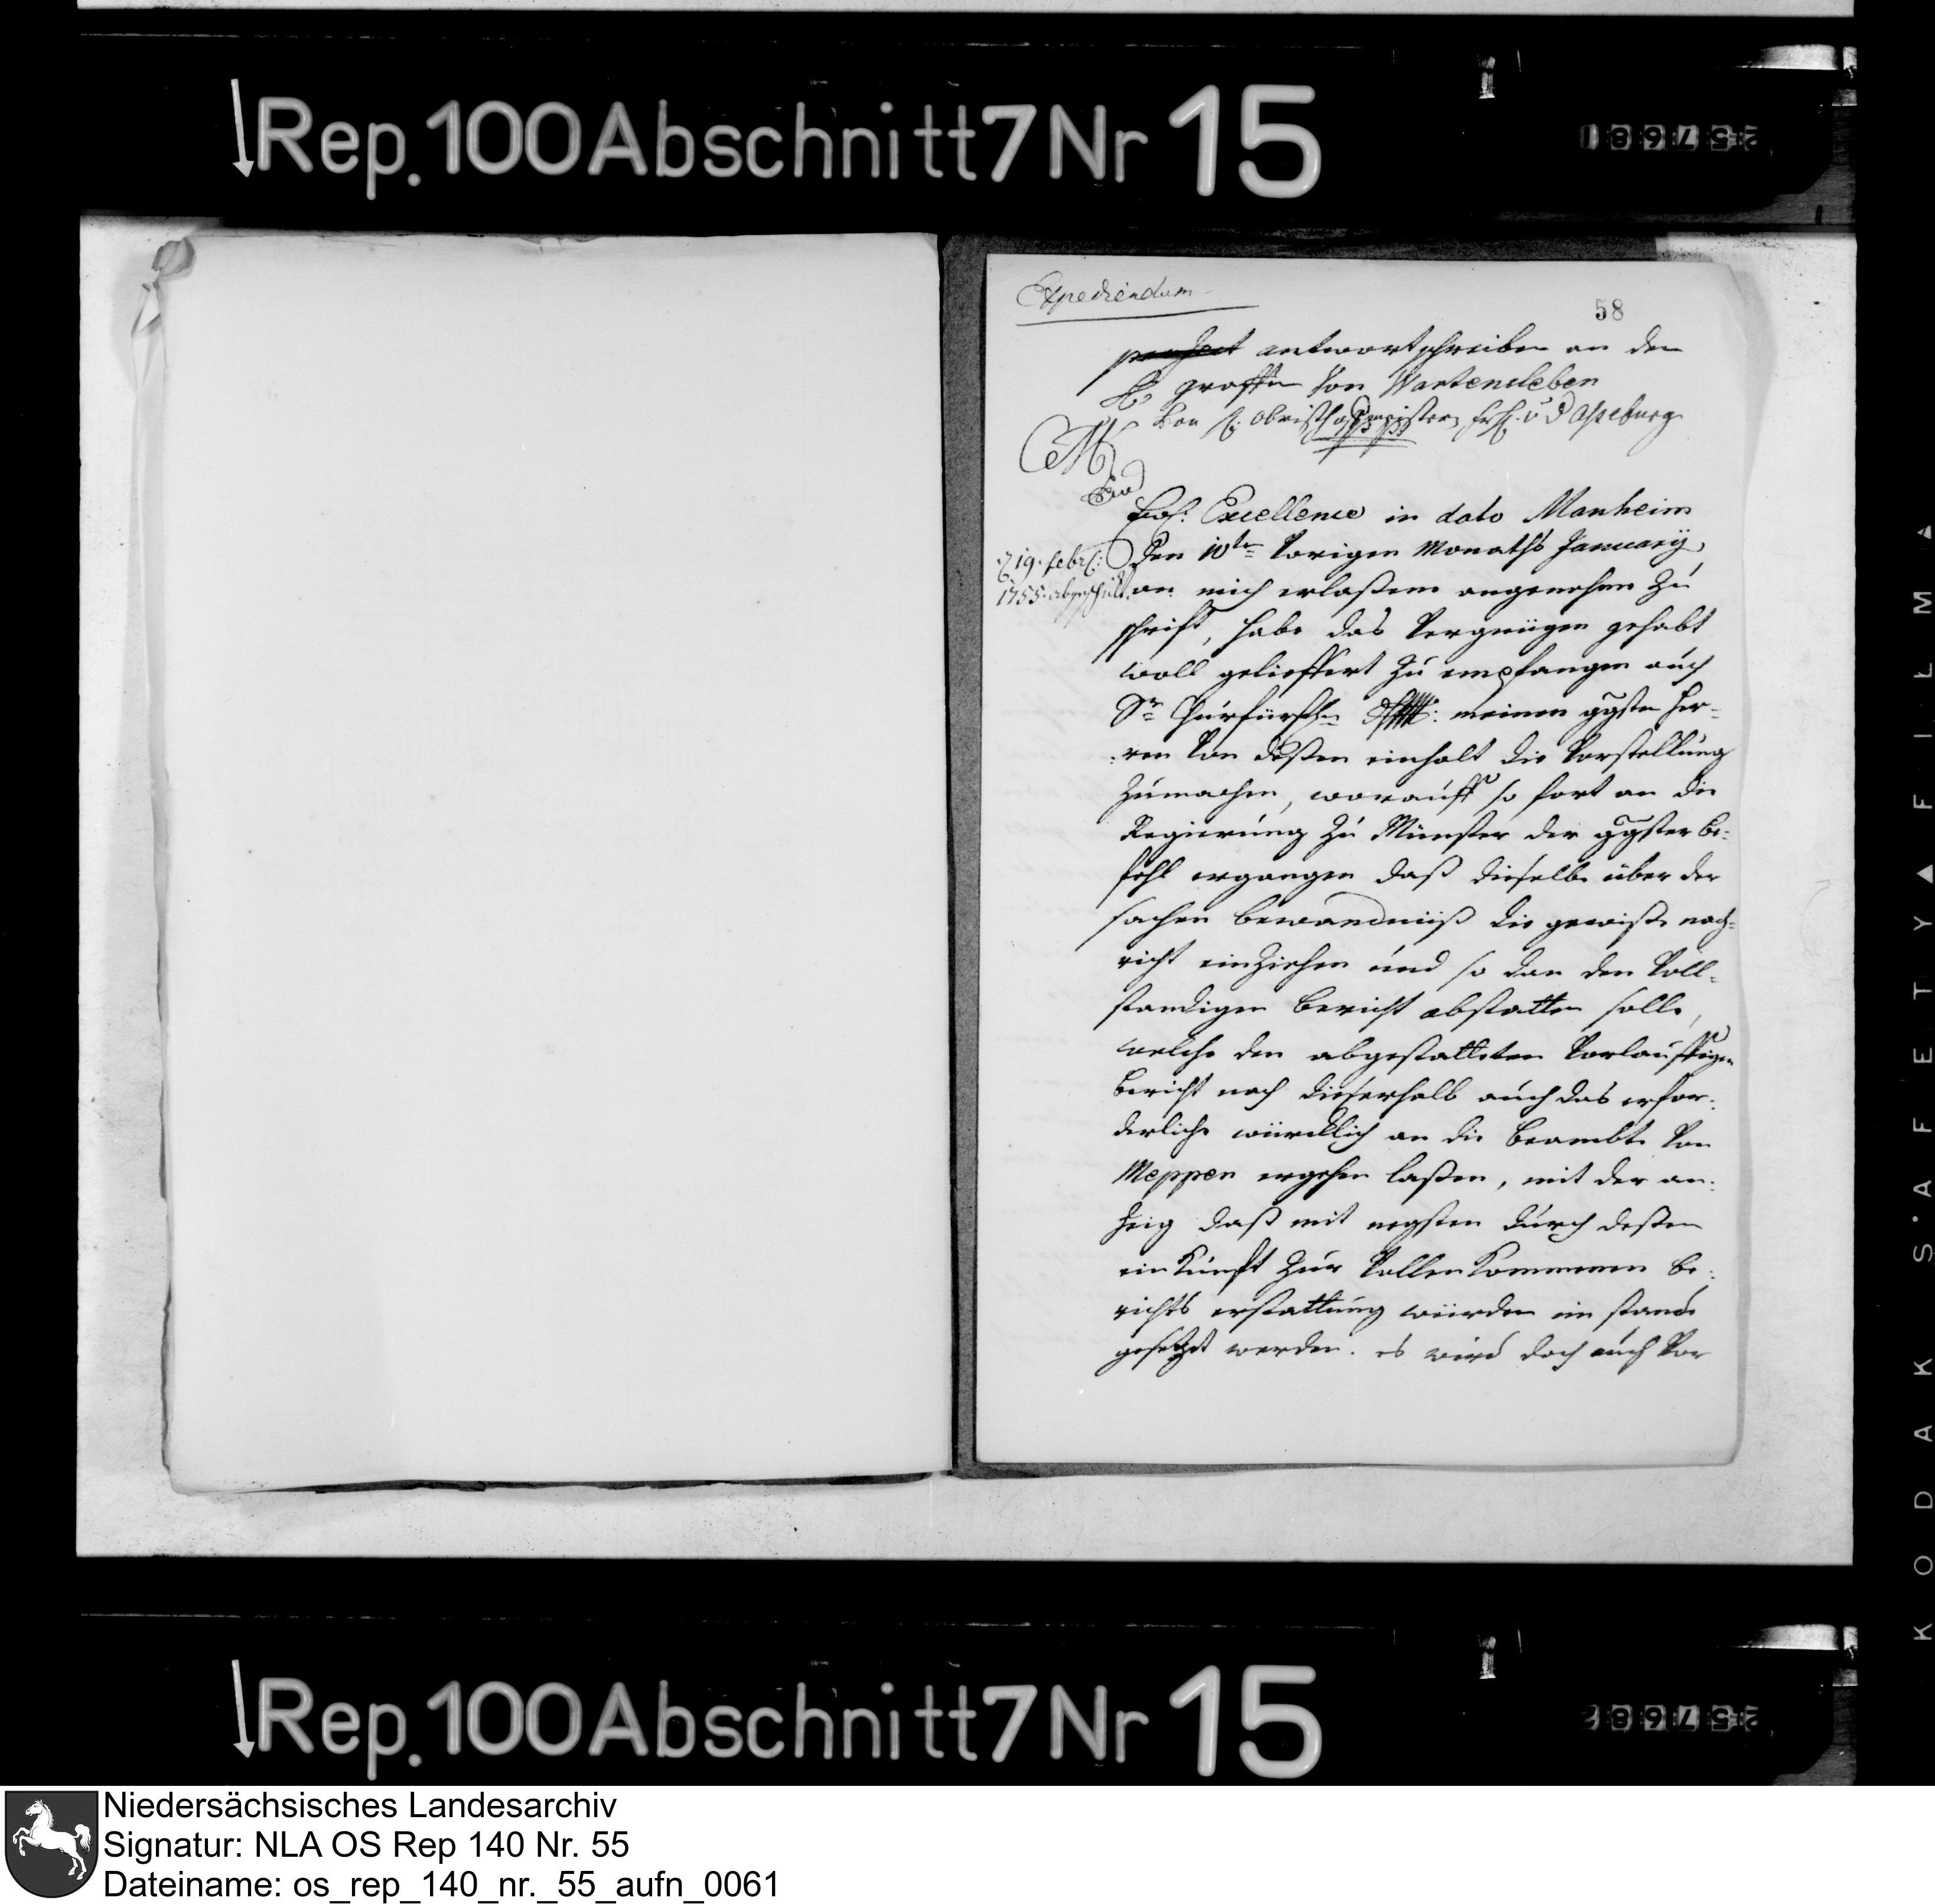 Rep. 100 Abschnitt 7 Nr 15
Expediendum
58
antwortschreiben an den
H. graffen von Wartensleben
von H. obristhoffmeistern frh. v. d. Asseburg
Ew. Excellence in dato Manheim
den 10ten vorigen Monaths January
19. febr:
1755. abgeschickt
an mich erlaßene angenehme Zu
schrift, habe das Vergnügen gehabt
woll gelieffert zu empfangen auch
Sr Churfürstln meinem ggsten Her-
ren von deßen einhalt die Vorstellung
zumachen, worauff so fort an die
Regierung zu Münster der ggster be-
fehl ergangen daß dieselbe über der
sachen bewandnüß die gewiße nach-
richt einziehen und so dan den voll-
standigen bericht abstatten solle,
welche den abgestatteten vorlauffigen
bericht nach dieserhalb auch das erfor-
derliche würcklich an die beambte von
Meppen ergehen laßen, mit der an-
zeig daß mit negsten durch deßen
einkunft zur vollenkommenen be-
richts erstattung würden im stande
gesetzet werden. es wird doch auch vor
Rep. 100 Abschnitt 7 Nr 15
KODAK S·A·F·E·T·Y ▲ F I L M ▲
Niedersächsisches Landesarchiv
Signatur: NLA OS Rep 140 Nr. 55
Dateiname: os_rep_140_nr._55_aufn_0061